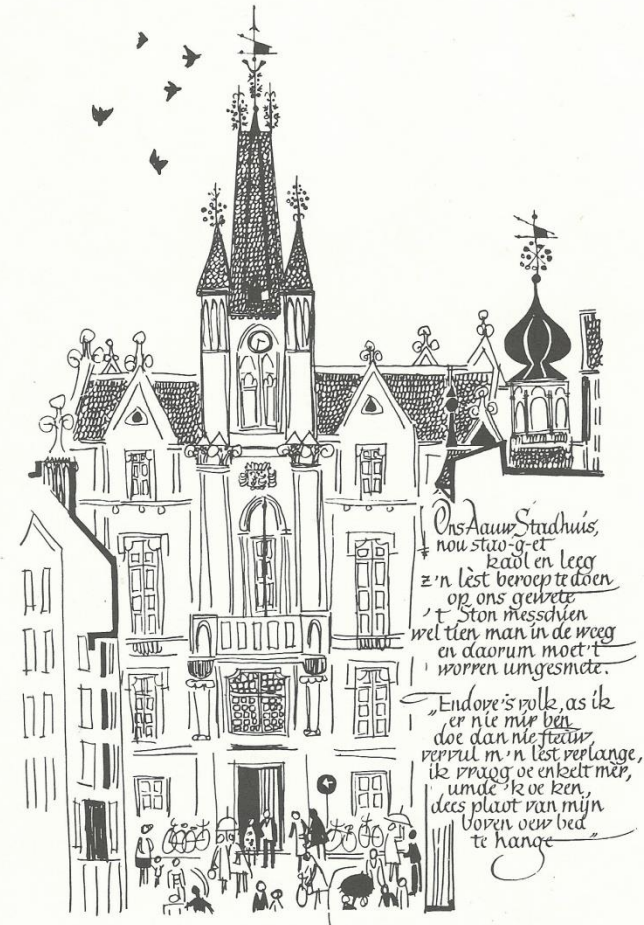 Ons Aauw Stadhuis,
nou stao-g-et
kaol en leeg
z'n lèst beroep te doen
op ons gewete
't Ston messchien
wel tien man in de weeg
en daorum moet 't
worren umgesmete.
„Endove's volk, as ik
er nie mir ben
doe dan nie flauw,
vervul m'n lèst verlange,
ik vraog oe enkelt mèr,
umde 'k oe ken,
dees plaot van mijn
boven oew bed
te hange"